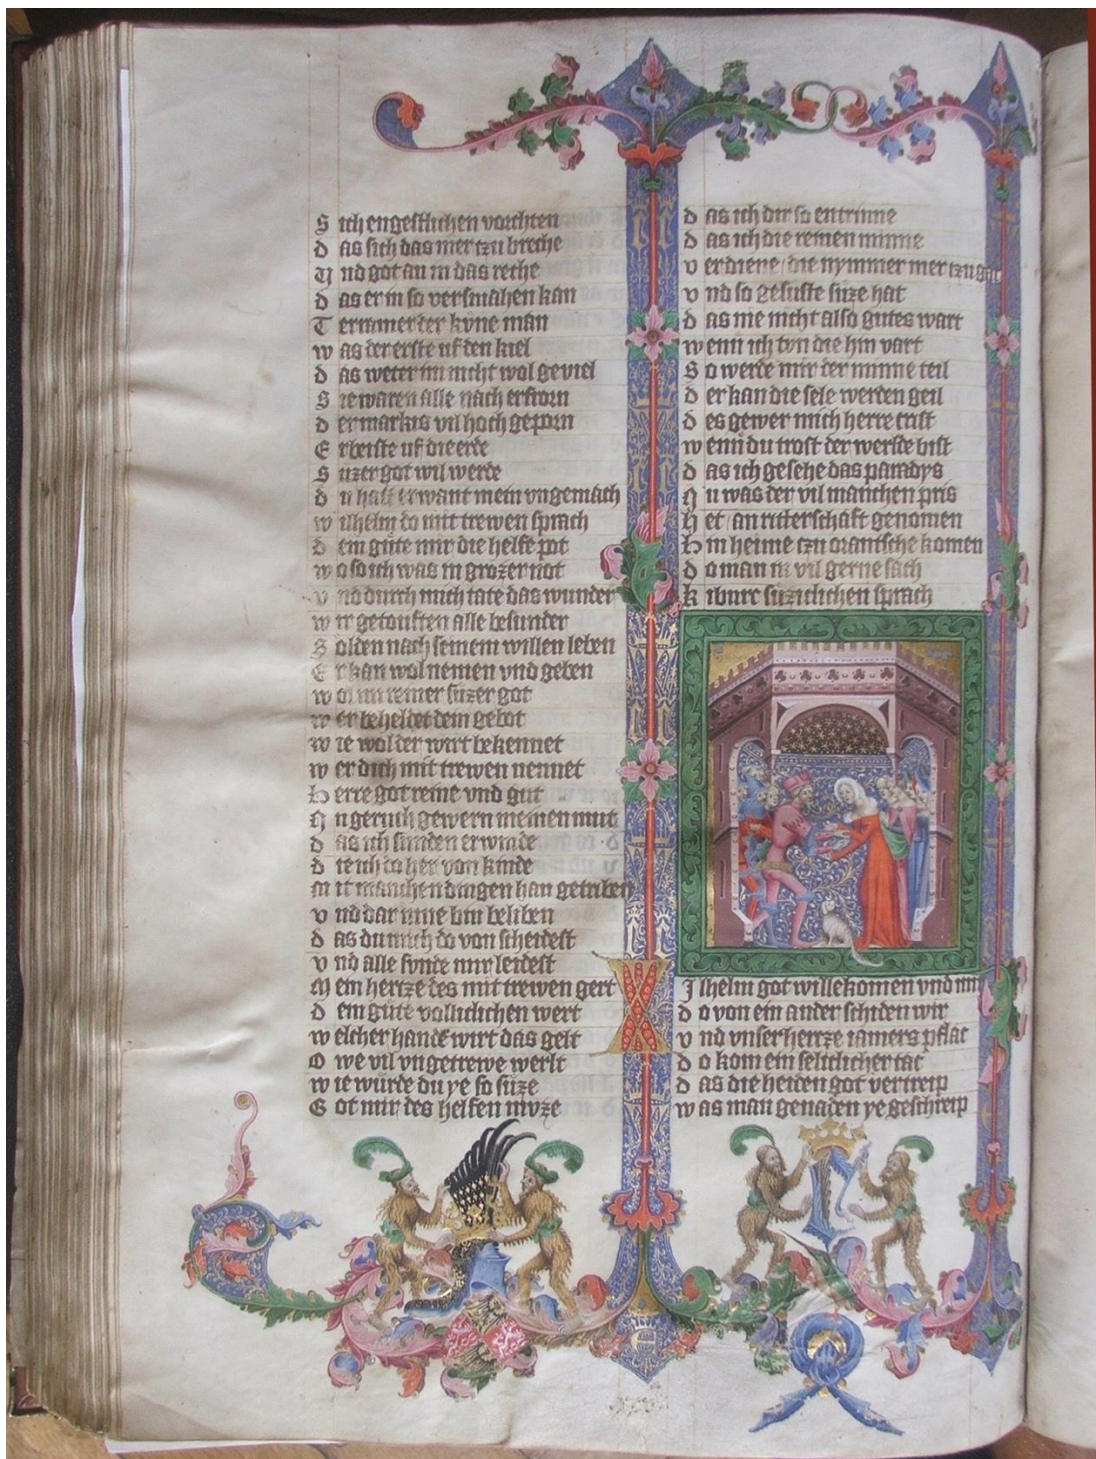 S ich engestlichen vorchten
d as sich das mer tzu breche
V nd got an in das reche
d as er in so versmahen kan
T erramer der kvne man
w as der erste uf den kiel
d as weter im nicht wol geviel
S ie waren alle nach erfrorn
d er markis vil hoch geporn
E r beiste uf die erde
S uzer got vil werde
d u hast erwant mein vngemach
w ilhelm do mit trewen sprach
d em gute mir die helfe pot
w o so ich was in grozer not
v nd durch mich tate das wunder
w ir getouften alle besunder
S olden nach seinem willen leben
E r kan wol nemen vnd geben
w ol im reiner suzer got
w er beheldet dein gebot
w ie wol der wirt bekennet
w er dich mit trewen nennet
h erre got reine vnd gut
N u geruch gewern meinen mut
d as ich sunden erwinde
d ie ich da her von kinde
M it manchen dingen han getriben
v nd dar inne bin beliben
d as du mich do von scheidest
v nd alle svnde mir leidest
M ein hertze des mit trewen gert
d em gute vollichlichen wert
w elcher hande wirt das gelt
O we vil vngetrewe werlt
w ie wurde du ye so suze
G ot mir des helfen mvze
d as ich dir so entrinne
d as ich die reinen minne
v erdiene die nymmer mer tzu gat
v nd so gesuste suze hat
d as nie nicht also gutes wart
w enn ich tvn die hin vart
S o werde mir der minne teil
d er kan die sele werden geil
d es gewer mich herre crist
w enn du trost der werlde bist
d as ich gesehe das paradys
N u was der vil manchen pris
h et an ritterschaft genomen
h in heime tzu orantsche komen
d o man in vil gerne sach
k iburc suzichlichen sprach
W ilhelm got willekomen vnd mir
d o von ein ander schiden wir
v nd vnser hertze iamers pflac
d o kom ein selichlicher tac
d as die heiden got vertreip
w as man genaden ye geschreip